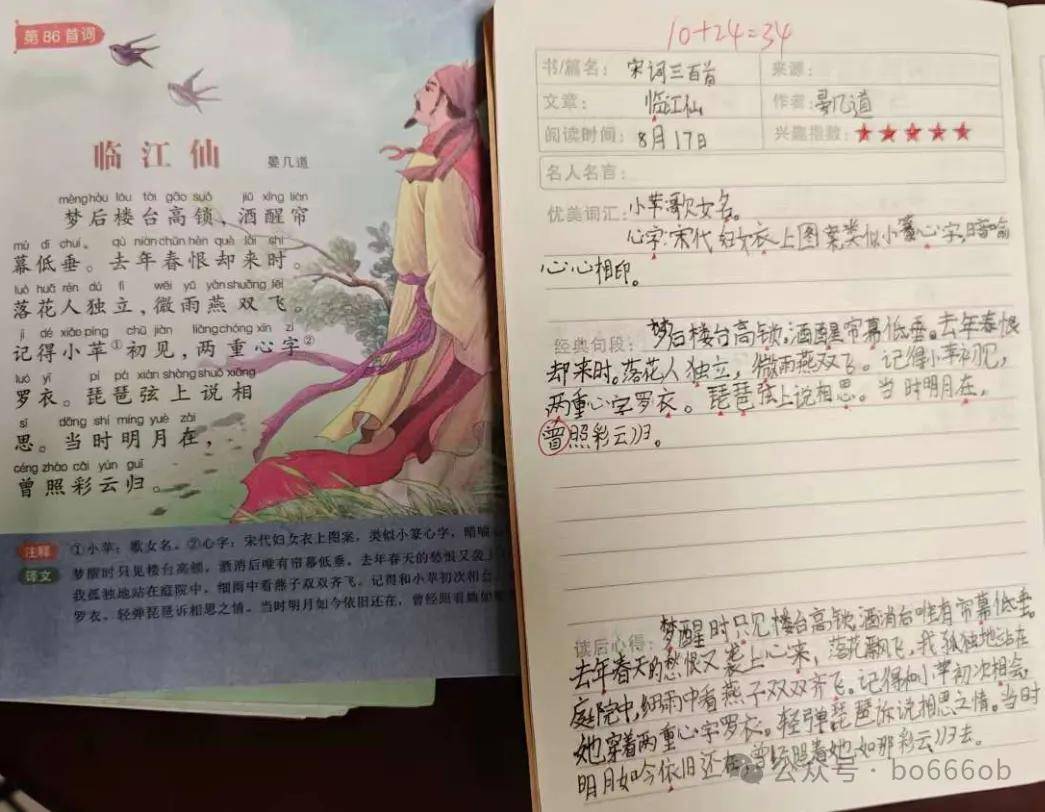 第86首词
临江仙
晏几道
mèng hòu lóu tái gāo suǒ jiǔ xǐng lián
梦后楼台高锁，酒醒帘
mù dī chuí。 qù nián chūn hèn què lái shí
幕低垂。去年春恨却来时。
luò huā rén dú lì wēi yǔ yàn shuāng fēi
落花人独立，微雨燕双飞。
jì dé xiǎo píng chū jiàn liǎng chóng xīn zì
记得小苹①初见，两重心字②
luó yī pí pá xián shàng shuō xiāng
罗衣。琵琶弦上说相
sī dāng shí míng yuè zài
思。当时明月在，
céng zhào cǎi yún guī
曾照彩云归。
注释 ①小苹：歌女名。②心字：宋代妇女衣上图案，类似小篆心字，暗喻
译文 梦醒时只见楼台高锁，酒消后唯有帘幕低垂。去年春天的愁恨又袭上
我孤独地站在庭院中，细雨中看燕子双双齐飞。记得和小苹初次相会，
罗衣。轻弹琵琶诉相思之情。当时明月如今依旧还在，曾经照着她如
10+24=34
书/篇名： 宋词三百首 来源：
文章： 临江仙 作者：晏几道
阅读时间： 8月17日 兴趣指数：★★★★★
名人名言：
优美词汇：小苹：歌女名。
心字：宋代妇女衣上图案类似小篆心字，暗喻
心心相印。
经典句段：梦后楼台高锁，酒醒帘幕低垂。去年春恨
却来时。落花人独立，微雨燕双飞。记得小苹初见，
两重心字罗衣。琵琶弦上说相思。当时明月在，
曾照彩云归。
读后心得：梦醒时只见楼台高锁，酒消后唯有帘幕低垂。
去年春天的愁恨又袭上心来，落花飘飞，我孤独地站在
庭院中，细雨中看燕子双双齐飞。记得和小苹初次相会，
她穿着两重心字罗衣。轻弹琵琶诉说相思之情。当时
明月如今依旧还在，曾经照着她如那彩云归去。
公众号 · bo666ob